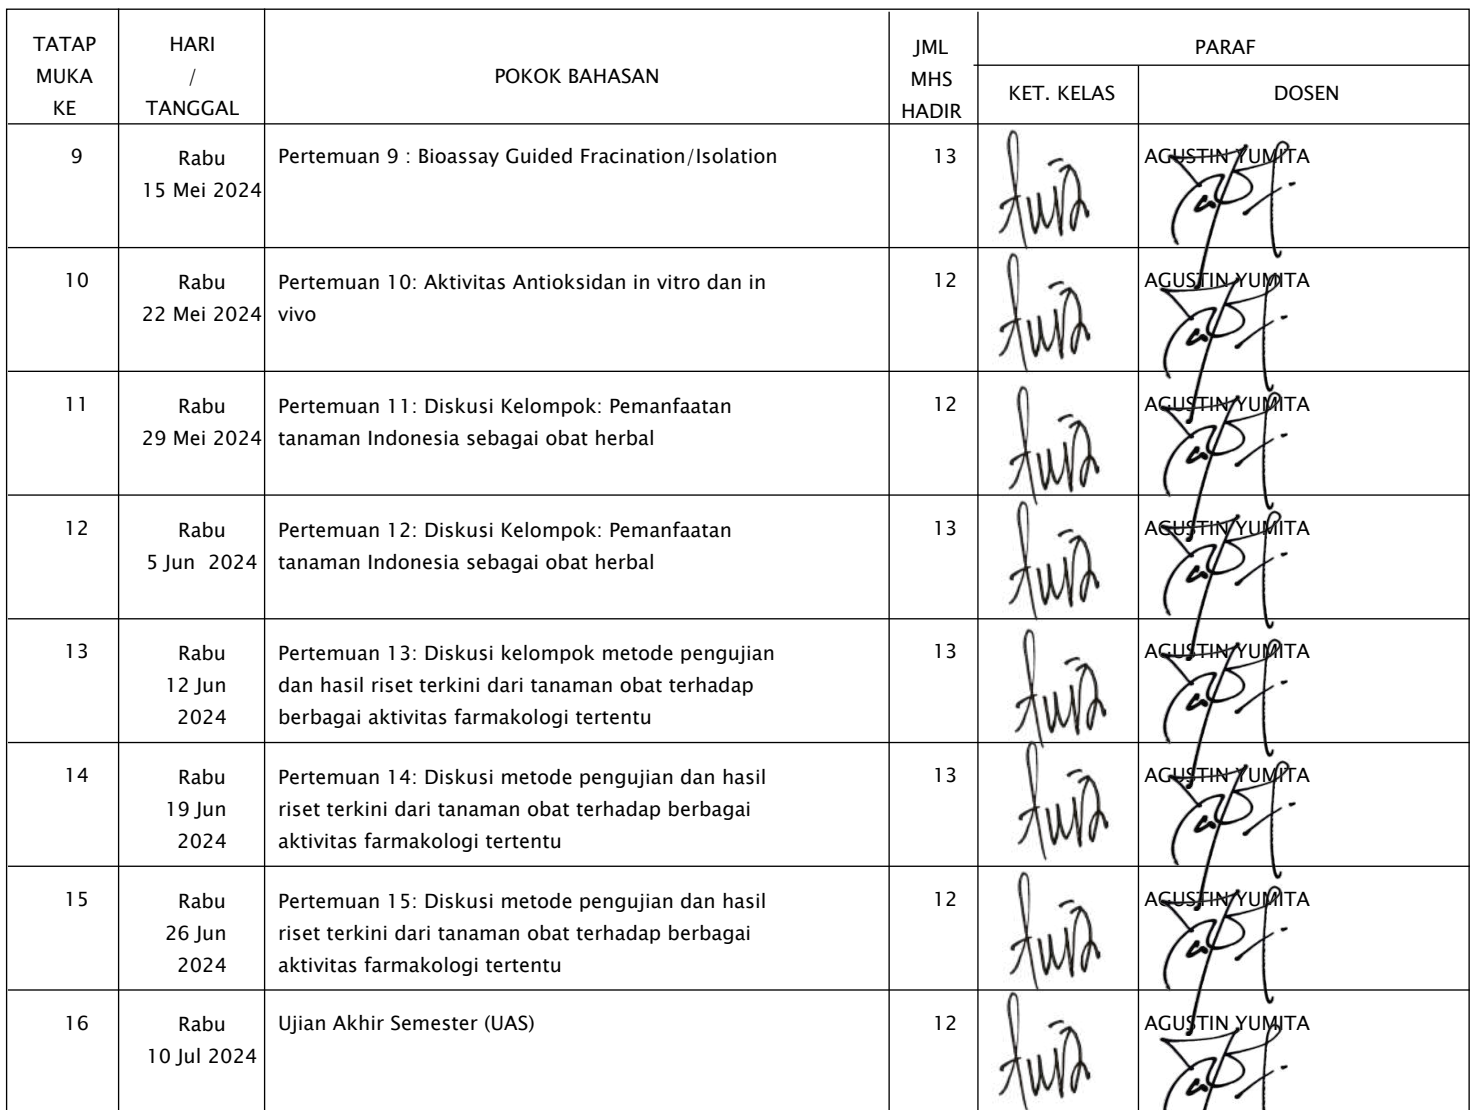 TATAP MUKA KE
HARI / TANGGAL
POKOK BAHASAN
JML MHS HADIR
PARAF
KET. KELAS
DOSEN
9
Rabu
15 Mei 2024
Pertemuan 9 : Bioassay Guided Fracination/Isolation
13
AGUSTIN YUMITA
10
Rabu
22 Mei 2024
Pertemuan 10: Aktivitas Antioksidan in vitro dan in
vivo
12
AGUSTIN YUMITA
11
Rabu
29 Mei 2024
Pertemuan 11: Diskusi Kelompok: Pemanfaatan
tanaman Indonesia sebagai obat herbal
12
AGUSTIN YUMITA
12
Rabu
5 Jun 2024
Pertemuan 12: Diskusi Kelompok: Pemanfaatan
tanaman Indonesia sebagai obat herbal
13
AGUSTIN YUMITA
13
Rabu
12 Jun
2024
Pertemuan 13: Diskusi kelompok metode pengujian
dan hasil riset terkini dari tanaman obat terhadap
berbagai aktivitas farmakologi tertentu
13
AGUSTIN YUMITA
14
Rabu
19 Jun
2024
Pertemuan 14: Diskusi metode pengujian dan hasil
riset terkini dari tanaman obat terhadap berbagai
aktivitas farmakologi tertentu
13
AGUSTIN YUMITA
15
Rabu
26 Jun
2024
Pertemuan 15: Diskusi metode pengujian dan hasil
riset terkini dari tanaman obat terhadap berbagai
aktivitas farmakologi tertentu
12
AGUSTIN YUMITA
16
Rabu
10 Jul 2024
Ujian Akhir Semester (UAS)
12
AGUSTIN YUMITA